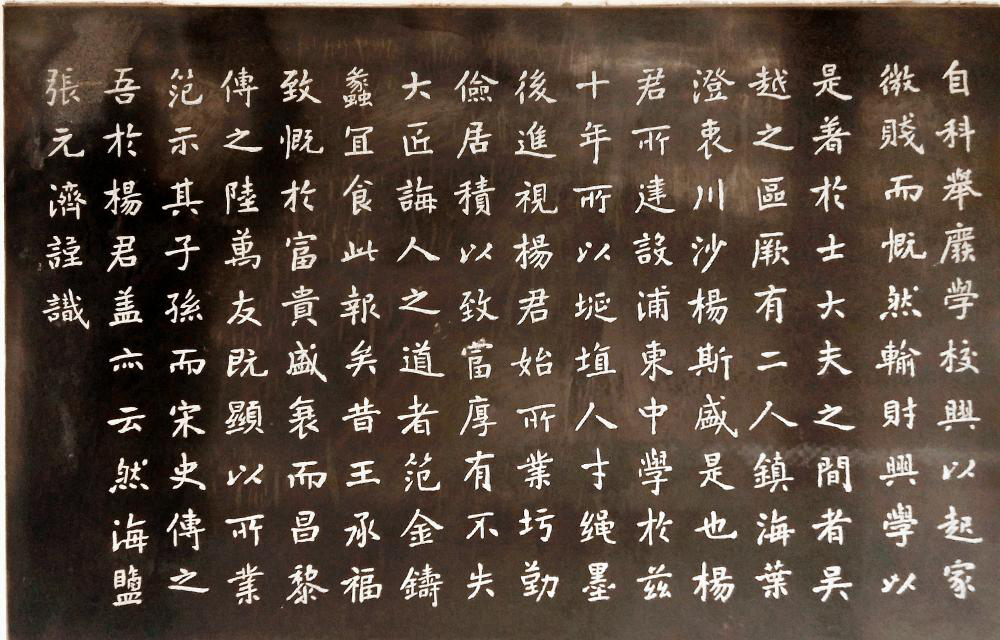 自科舉廢學校興以起家
微賤而慨然輸財興學以
是著於士大夫之間者吳
越之區厥有二人鎮海葉
澄衷川沙楊斯盛是也楊
君所建設浦東中學於兹
十年所以埏埴人才繩墨
後進視楊君始所業圬勤
儉居積以致富厚有不失
大匠誨人之道者范金鑄
蠡冝食此報矣昔王承福
致慨於富貴盛衰而昌黎
傳之陸萬友既顯以所業
范示其子孫而宋史傳之
吾於楊君盖亦云然海鹽
張元濟謹識